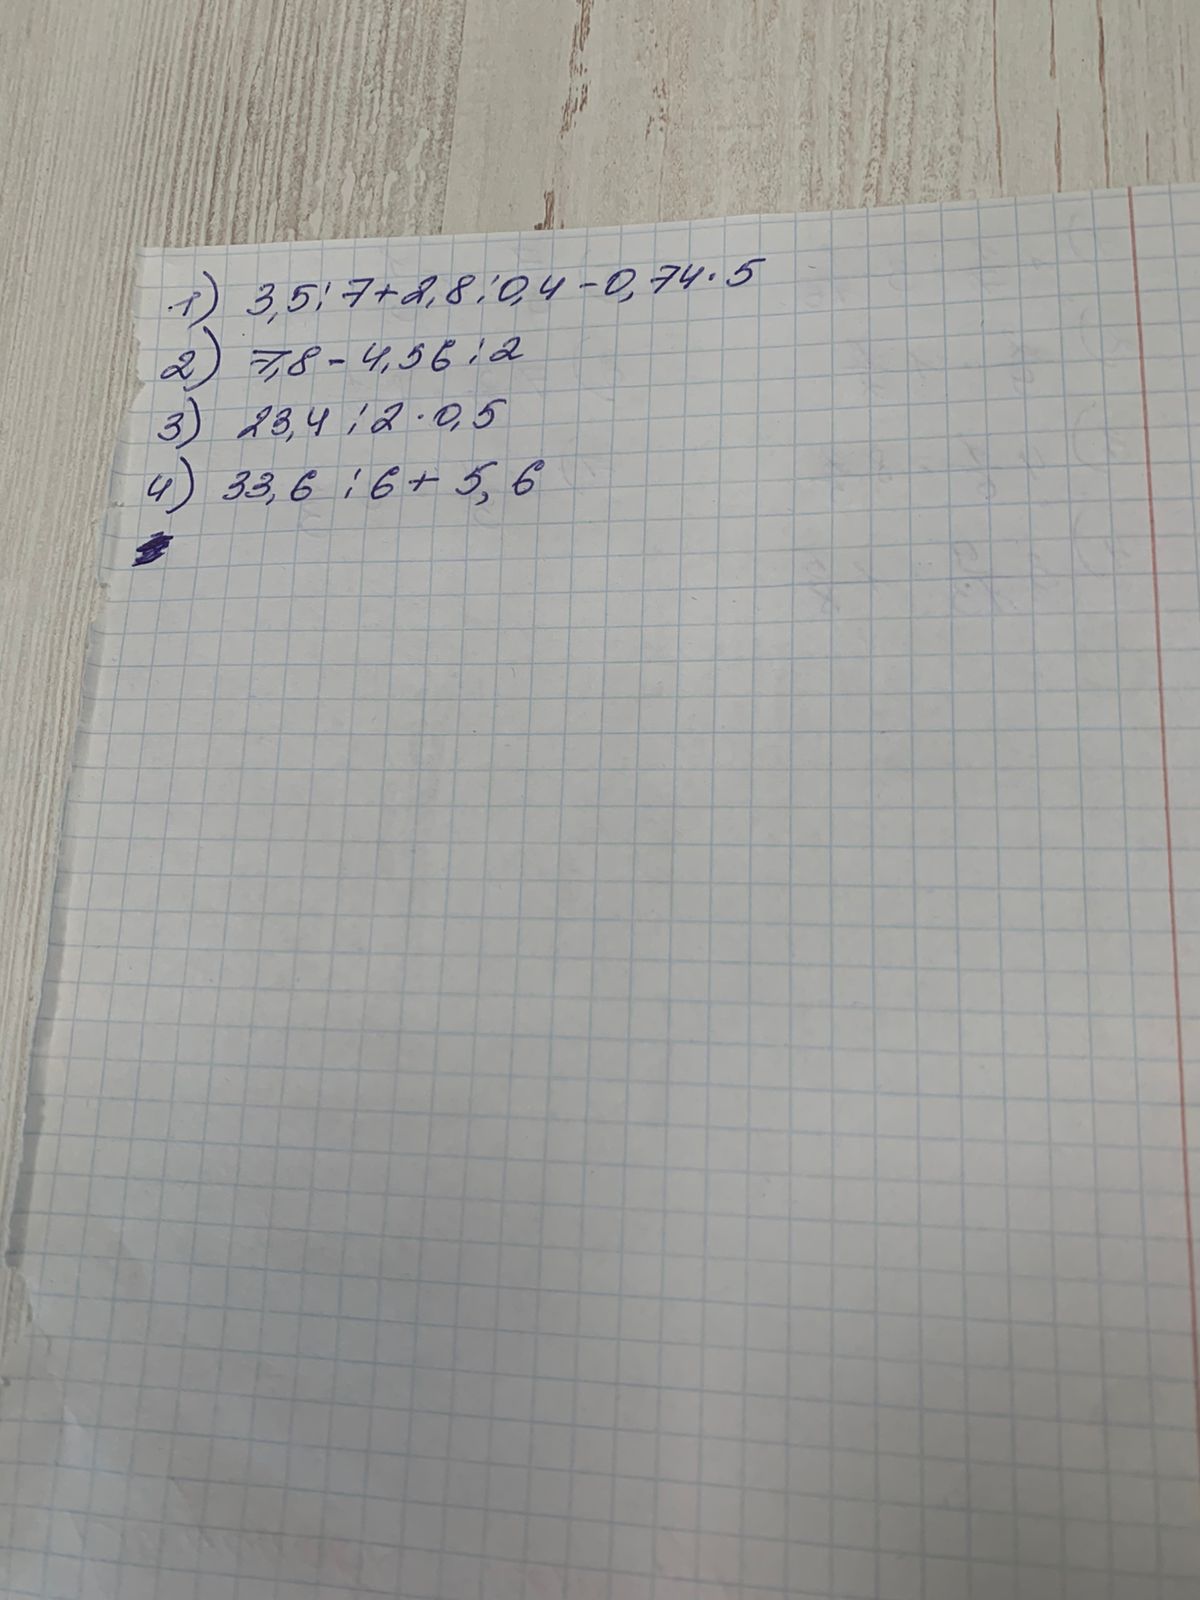 1) 3,5:7+2,8:0,4-0,74·5
2) 7,8-4,56:2
3) 23,4:2·0,5
4) 33,6:6+5,6